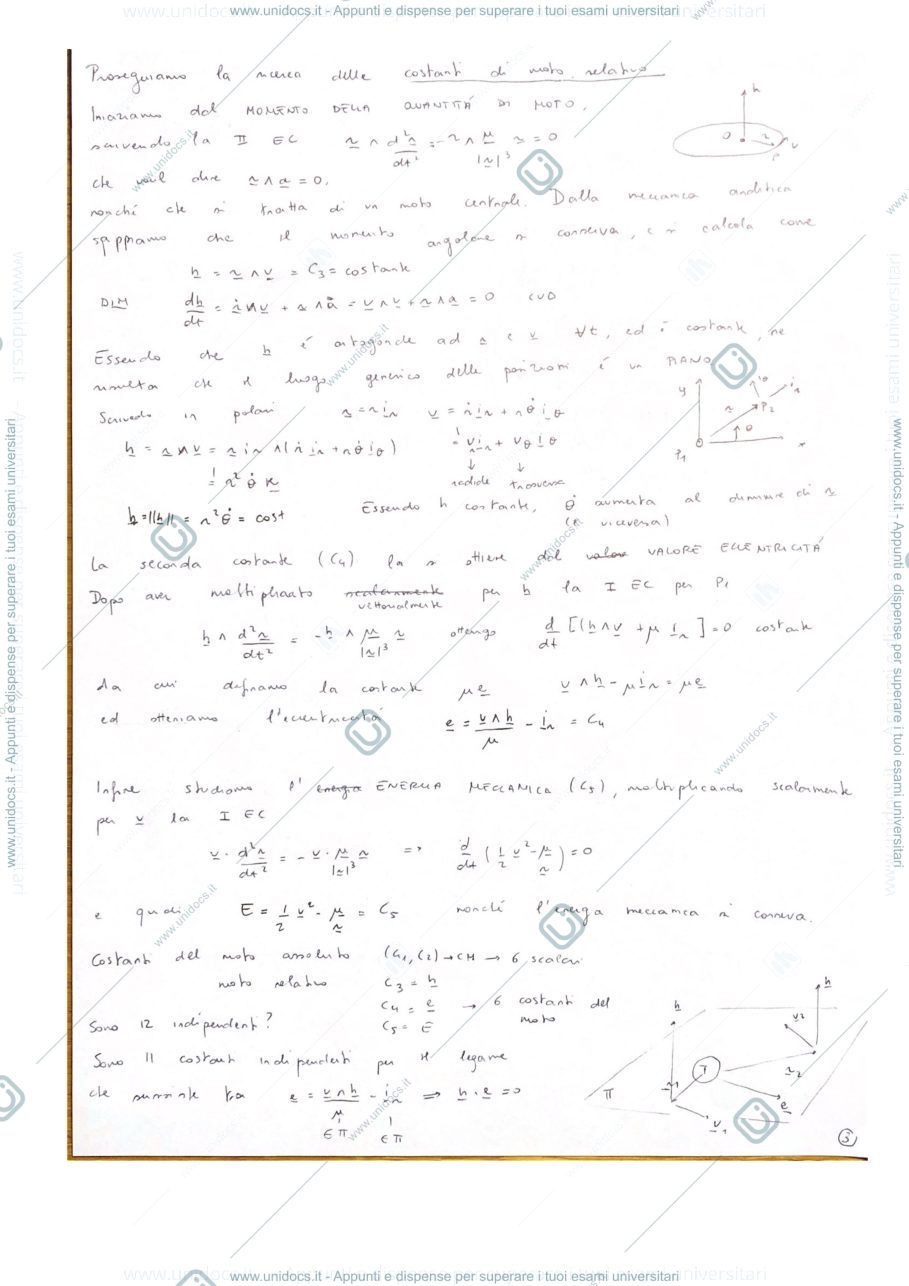 www.unidocs.it - Appunti e dispense per superare i tuoi esami universitari
Proseguiamo la ricerca delle costanti di moto relativo
Iniziamo dal MOMENTO DELLA QUANTITÀ DI MOTO,
scrivendo la II EC r ∧ d²r/dt² = - r ∧ μ/|r|³ r = 0
che vuol dire r ∧ a = 0,
nonché che si tratta di un moto centrale. Dalla meccanica analitica
sappiamo che il momento angolare si conserva, e si calcola come
h = r ∧ v = C3 = costante
DIM dh/dt = ṙ ∧ v + r ∧ a = v ∧ v + r ∧ a = 0 CVD
Essendo che h è ortogonale ad r e v ∀t, ed è costante, ne
risulta che il luogo generico delle posizioni è un PIANO
Scrivendo in polari r = r i_r v = ṙ i_r + r θ̇ i_θ
h = r ∧ v = r i_r ∧ (ṙ i_r + r θ̇ i_θ) = v i_r + v_θ i_θ
= r² θ̇ k radiale trasversa
h = ||h|| = r² θ̇ = cost Essendo h costante, θ̇ aumenta al diminuire di r
(e viceversa)
La seconda costante (C4) la si ottiene dal valore VALORE ECCENTRICITÀ
Dopo aver moltiplicato scalarmente vettorialmente per h la I EC per P1
h ∧ d²r/dt² = - h ∧ μ/|r|³ r ottengo d/dt [(h ∧ v + μ i_r] = 0 costante
da cui definiamo la costante μ e v ∧ h - μ i_r = μ e
ed otteniamo l'eccentricità e = v ∧ h/μ - i_r = C4
Infine studiamo l' energia ENERGIA MECCANICA (C5), moltiplicando scalarmente
per v la I EC
v · d²r/dt² = - v · μ/|r|³ r => d/dt (1/2 v² - μ/r) = 0
e quindi E = 1/2 v² - μ/r = C5 nonché l'energia meccanica si conserva.
Costanti del moto assoluto (C1, C2) → CM → 6 scalari
moto relativo C3 = h
C4 = e → 6 costanti del
moto
Sono 12 indipendenti? C5 = E
Sono 11 costanti indipendenti per il legame
che sussiste tra e = v ∧ h/μ - i_r => h · e = 0
∈ π ∈ π
h
O r v
P
y r P2 i_θ i_r
θ x
P1
h h v2
r1 r2
π e
v1
3
www.unidocs.it - Appunti e dispense per superare i tuoi esami universitari